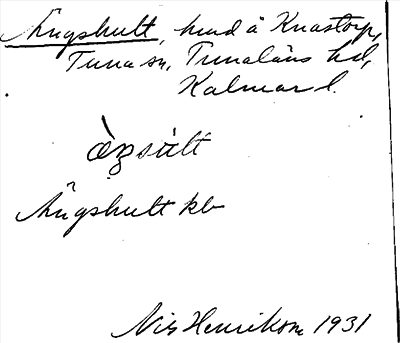 Ängshult, hmd å Knastorp,
Tuna sn, Tunaläns hd,
Kalmar l.
ὰꞑsὰlt
Ängshult kb
Nils Henrikson 1931